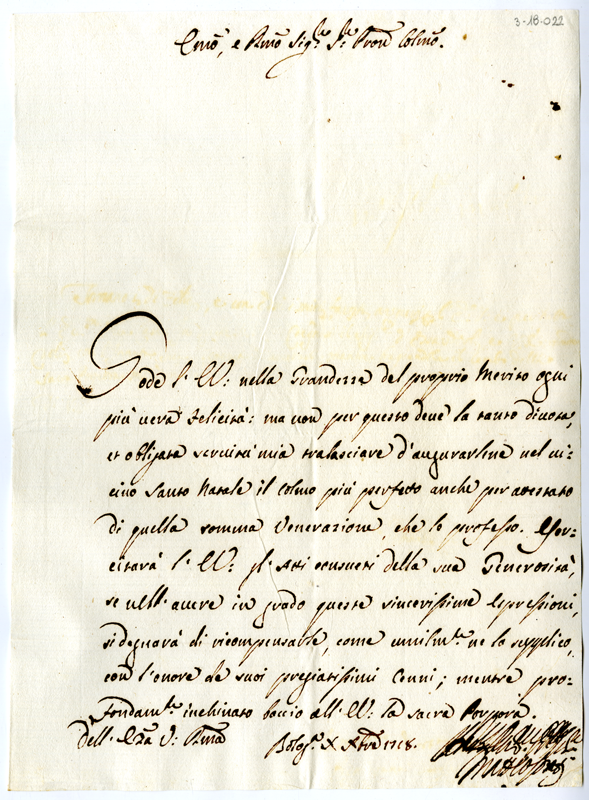 3-18-022
Emō, e Rmō Sigr. Sr. Prōn Colmō.
Gode l'E.V: nella Grandezza del proprio Merito ogni
più vera felicità: ma non per questo deve la tanto divota,
et obligata servitù mia tralasciare d'augurarlene nel vi-
cino Santo Natale il Colmo più perfetto anche per attestato
di quella somma Venerazione, che le professo. Eser-
citarà l'E.V: gl'Atti consueti della sua Generosità,
se nell'avere in grado queste sincerissime Espressioni,
si degnarà di ricompensarle, come umilmte. ne la supplico,
con l'onore de suoi pregiatissimi Cenni; mentre pro-
fondamte. inchinato baccio all'E.V: la sacra Porpora.
dell'Emza V: Rmā
Bologa. X Xbre 1718.